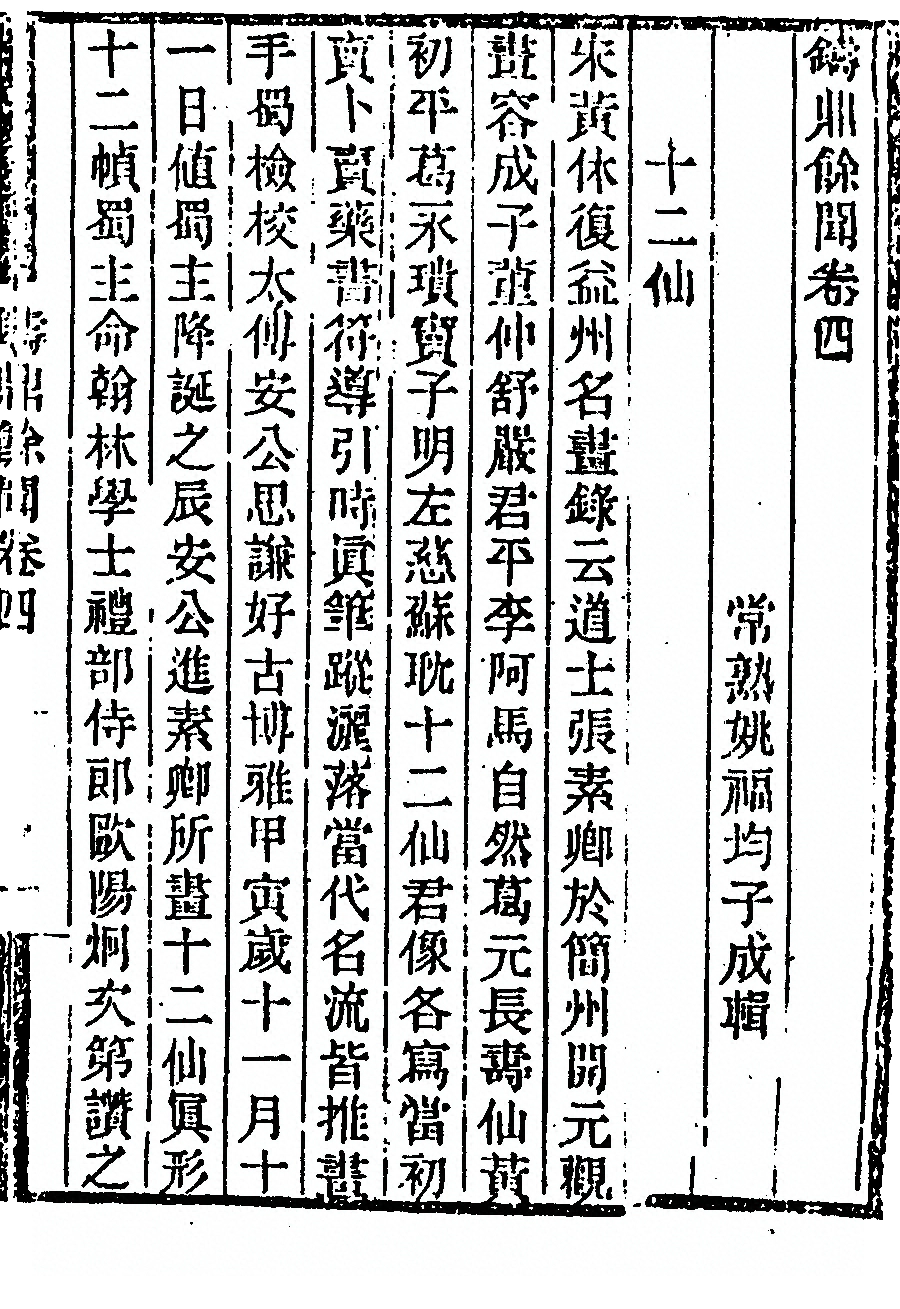 鑄鼎餘聞卷四
常熟姚福均子成輯
十二仙
宋黃休復益州名畫錄云道士張素卿於簡州開元觀
畫容成子董仲舒嚴君平李阿馬自然葛元長壽仙黃
初平葛永璝竇子明左慈蘇耽十二仙君像各寫當初
賣卜賣藥書符導引時眞雒蹤灑落當代名流皆推畫
手蜀檢校太傅安公思謙好古博雅甲寅歲十一月十
一日值蜀主降誕之辰安公進素卿所畫十二仙眞形
十二幀蜀主命翰林學士禮部侍郎歐陽炯次第讚之
鑄鼎餘聞卷四